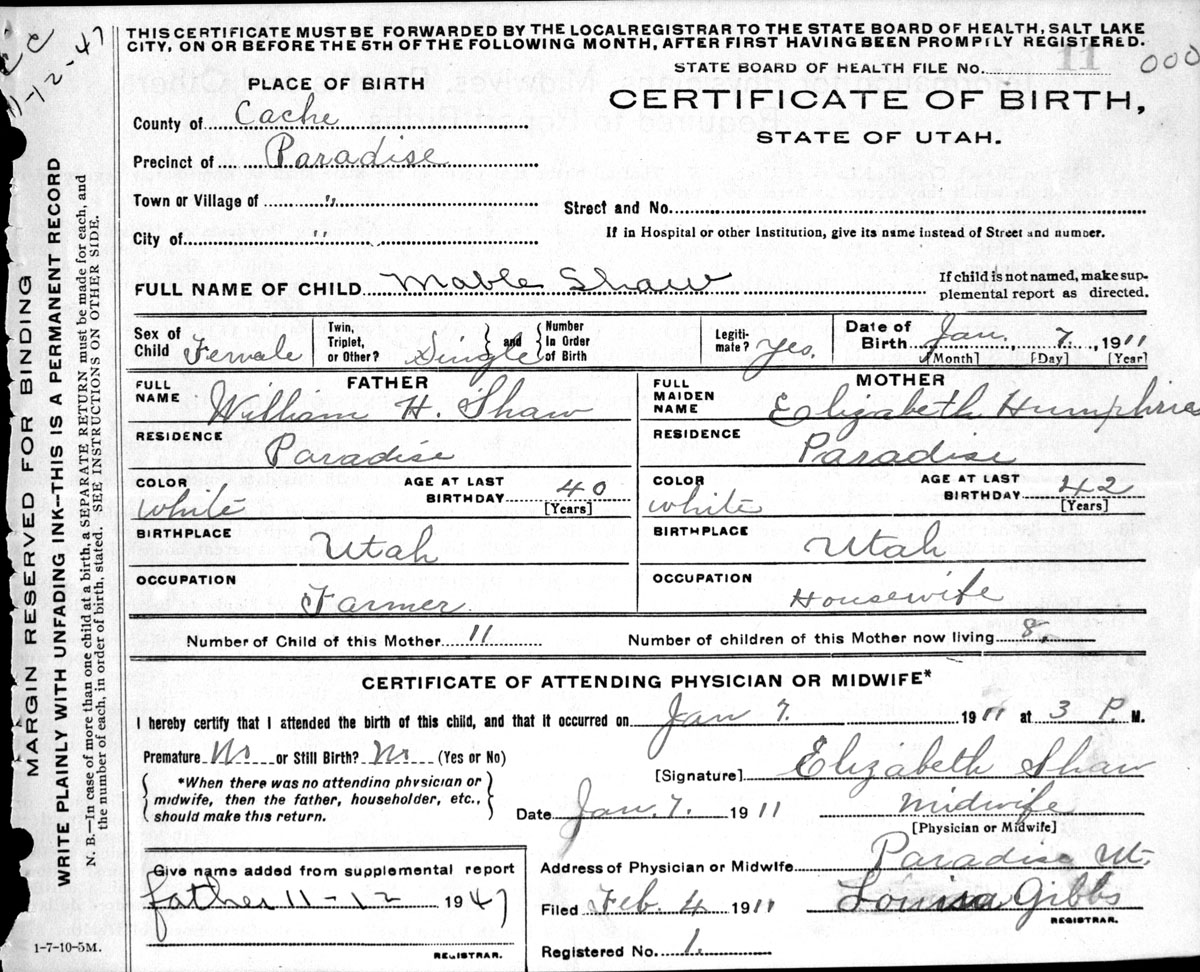 THIS CERTIFICATE MUST BE FORWARDED BY THE LOCAL REGISTRAR TO THE STATE BOARD OF HEALTH, SALT LAKE
CITY, ON OR BEFORE THE 5TH OF THE FOLLOWING MONTH, AFTER FIRST HAVING BEEN PROMPTLY REGISTERED.
STATE BOARD OF HEALTH FILE No. 11 000
11-12-47
PLACE OF BIRTH
CERTIFICATE OF BIRTH,
STATE OF UTAH.
County of Cache
Precinct of Paradise
Town or Village of "
Street and No.
City of "
If in Hospital or other Institution, give its name instead of Street and number.
FULL NAME OF CHILD Mable Shaw
If child is not named, make sup-
plemental report as directed.
Sex of Child Female
Twin, Triplet, or Other? Single and Number In Order of Birth
Legiti-mate? Yes.
Date of Birth Jan. 7. 1911
[Month] [Day] [Year]
FATHER
FULL NAME William H. Shaw
RESIDENCE Paradise
COLOR White AGE AT LAST BIRTHDAY 40 [Years]
BIRTHPLACE Utah
OCCUPATION Farmer.
MOTHER
FULL MAIDEN NAME Elizabeth Humphries
RESIDENCE Paradise
COLOR White AGE AT LAST BIRTHDAY 42 [Years]
BIRTHPLACE Utah
OCCUPATION Housewife
Number of Child of this Mother 11 Number of children of this Mother now living 8
CERTIFICATE OF ATTENDING PHYSICIAN OR MIDWIFE*
I hereby certify that I attended the birth of this child, and that it occurred on Jan 7. 1911 at 3 P. M.
Premature No or Still Birth? No (Yes or No)
*When there was no attending physician or
midwife, then the father, householder, etc.,
should make this return.
[Signature] Elizabeth Shaw
Date Jan. 7. 1911 Midwife
[Physician or Midwife]
Give name added from supplemental report
father 11-12 1947
REGISTRAR.
Address of Physician or Midwife Paradise Ut.
Filed Feb. 4 1911 Louisa Gibbs
REGISTRAR.
Registered No. 1.
1-7-10-5M.
MARGIN RESERVED FOR BINDING
WRITE PLAINLY WITH UNFADING INK--THIS IS A PERMANENT RECORD
N. B.—In case of more than one child at a birth, a SEPARATE RETURN must be made for each, and
the number of each, in order of birth, stated. SEE INSTRUCTIONS ON OTHER SIDE.